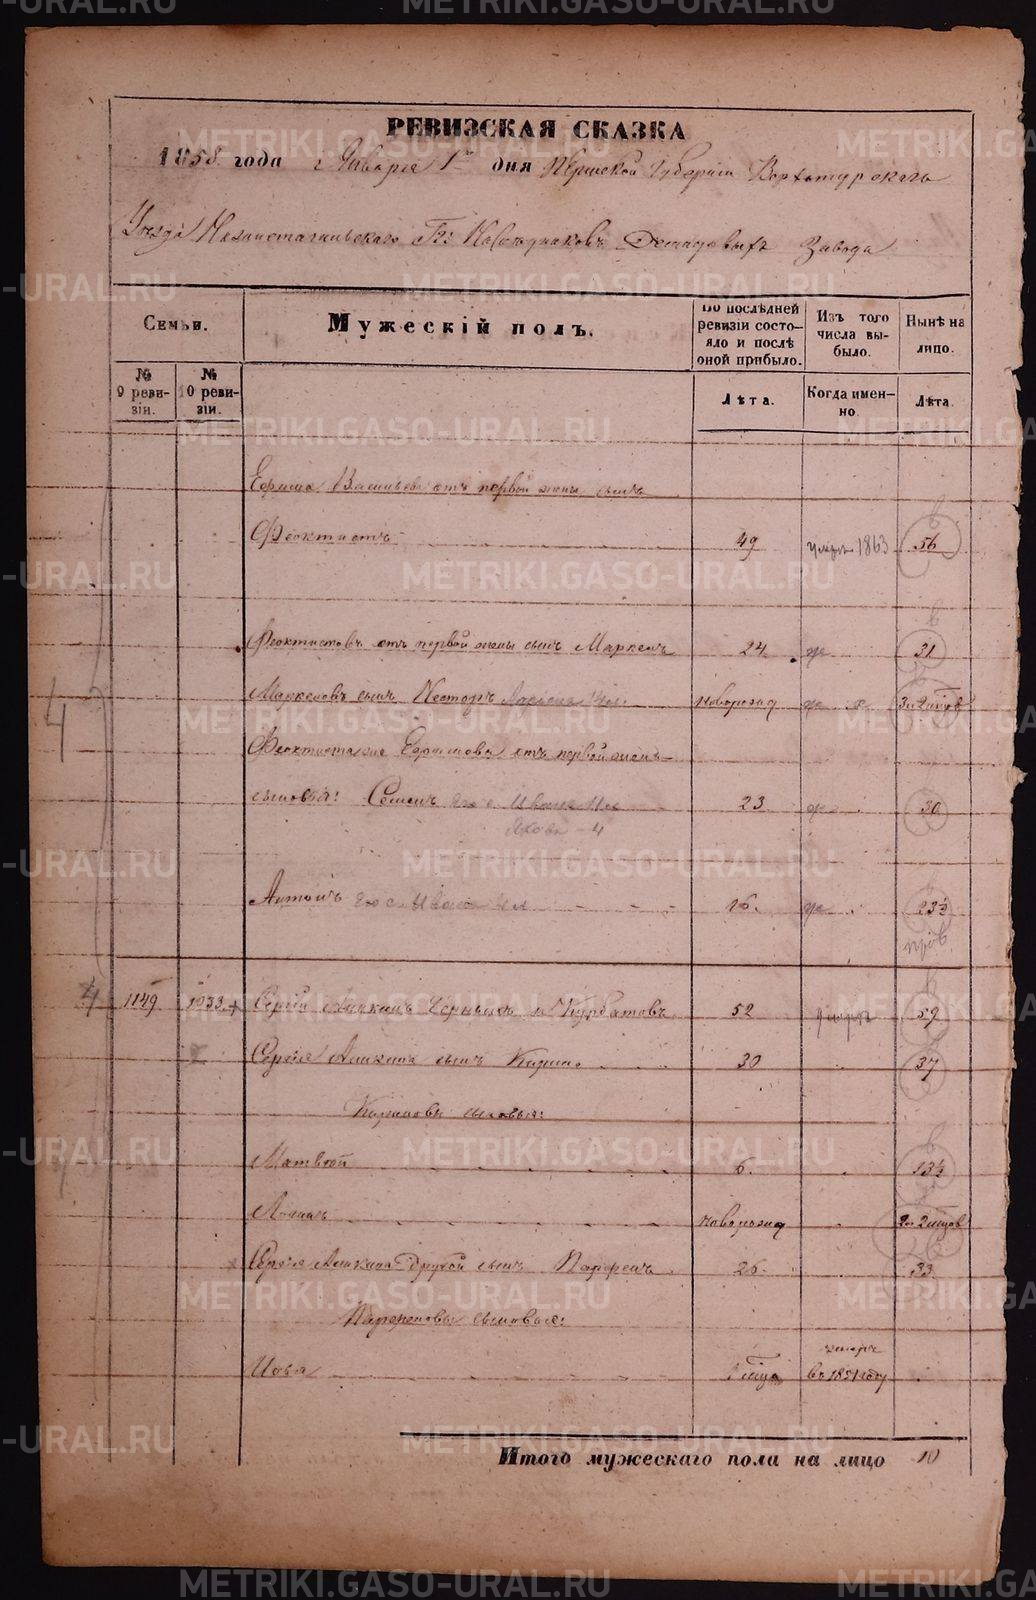 РЕВИЗСКАЯ СКАЗКА
1858 года Января 1 дня Пермской Губернии Верхотурскаго
Уѣзда Нижнетагильскаго Гг: Наслѣдниковъ Демидовыхъ Завода
Семьи.
Мужескій полъ.
По послѣдней ревизіи состояло и послѣ оной прибыло.
Изъ того числа выбыло.
Нынѣ на лицо.
№ 9 ревизіи.
№ 10 ревизіи.
Лѣта.
Когда именно
Лѣта.
Ефима Васильева отъ первой жены сынъ
Феоктистъ 49 умеръ 1863 56
Феоктистовъ отъ первой жены сынъ Маркелъ 24 31
Маркеловъ сынъ Несторъ новорожд
Феоктиста Ефимова отъ первой жены
сыновья: Семенъ его с Иванъ 23 30
Яковъ - 4
Антонъ его с Иванъ 16. 23½
4 1149 1033 Сергій Аникинъ Черныхъ и Курбатовъ 52 умеръ 59
Сергѣя Аникина сынъ 30 37
сыновья:
Матвѣй 6. 13½
новорожд
Сергѣя Аникина другой сынъ Парфенъ 26. 33
Парфеновы сыновья:
Иова умеръ въ 1851 году
Итого мужескаго пола на лицо 10
METRIKI.GASO-URAL.RU